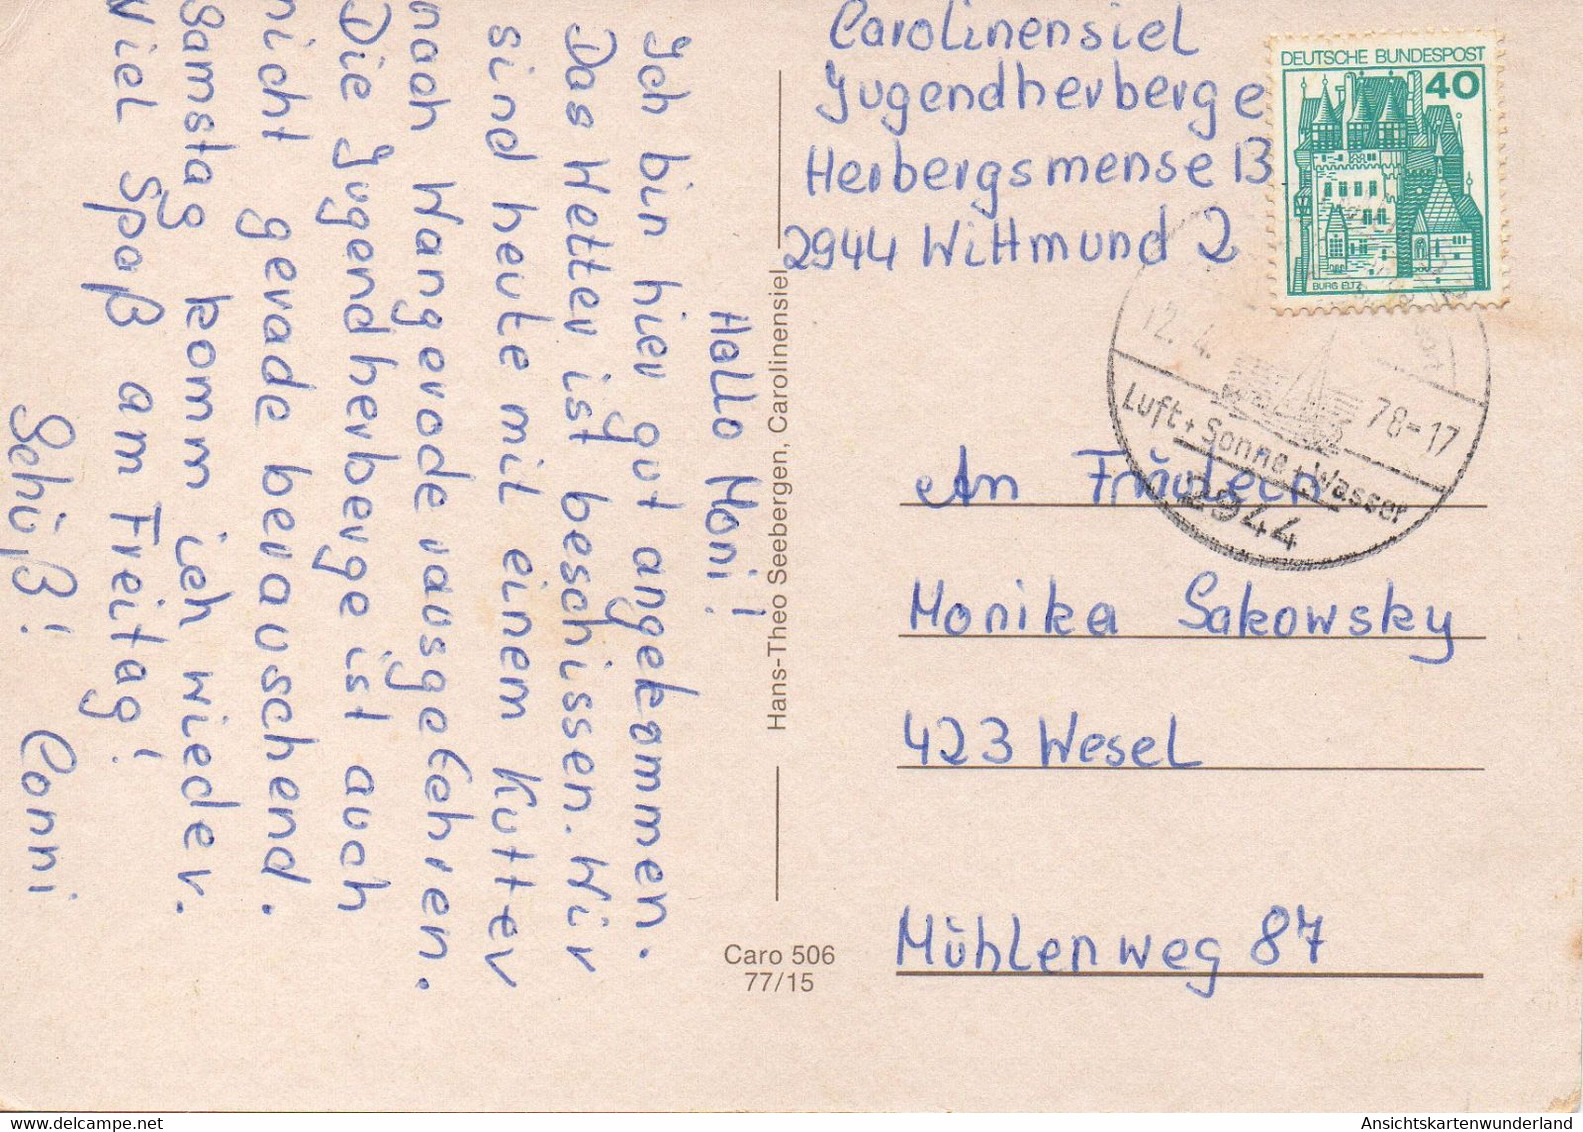 Carolinensiel
Jugendherberge
Herbergsmense 13
2944 Wittmund 2
DEUTSCHE BUNDESPOST
40
BURG ELTZ
12.4.78-17
Luft + Sonne + Wasser
2944
Hallo Moni!
Ich bin hier gut angekommen.
Das Wetter ist beschissen. Wir
sind heute mit einem Kutter
nach Wangerode rausgefahren.
Die Jugendherberge ist auch
nicht gerade berauschend.
Samstag komm ich wieder.
Viel Spaß am Freitag!
Schüß! Conni
Hans-Theo Seebergen, Carolinensiel
Caro 506
77/15
An Fräulein
Monika Sakowsky
423 Wesel
Mühlenweg 87
Ansichtskartenwunderland